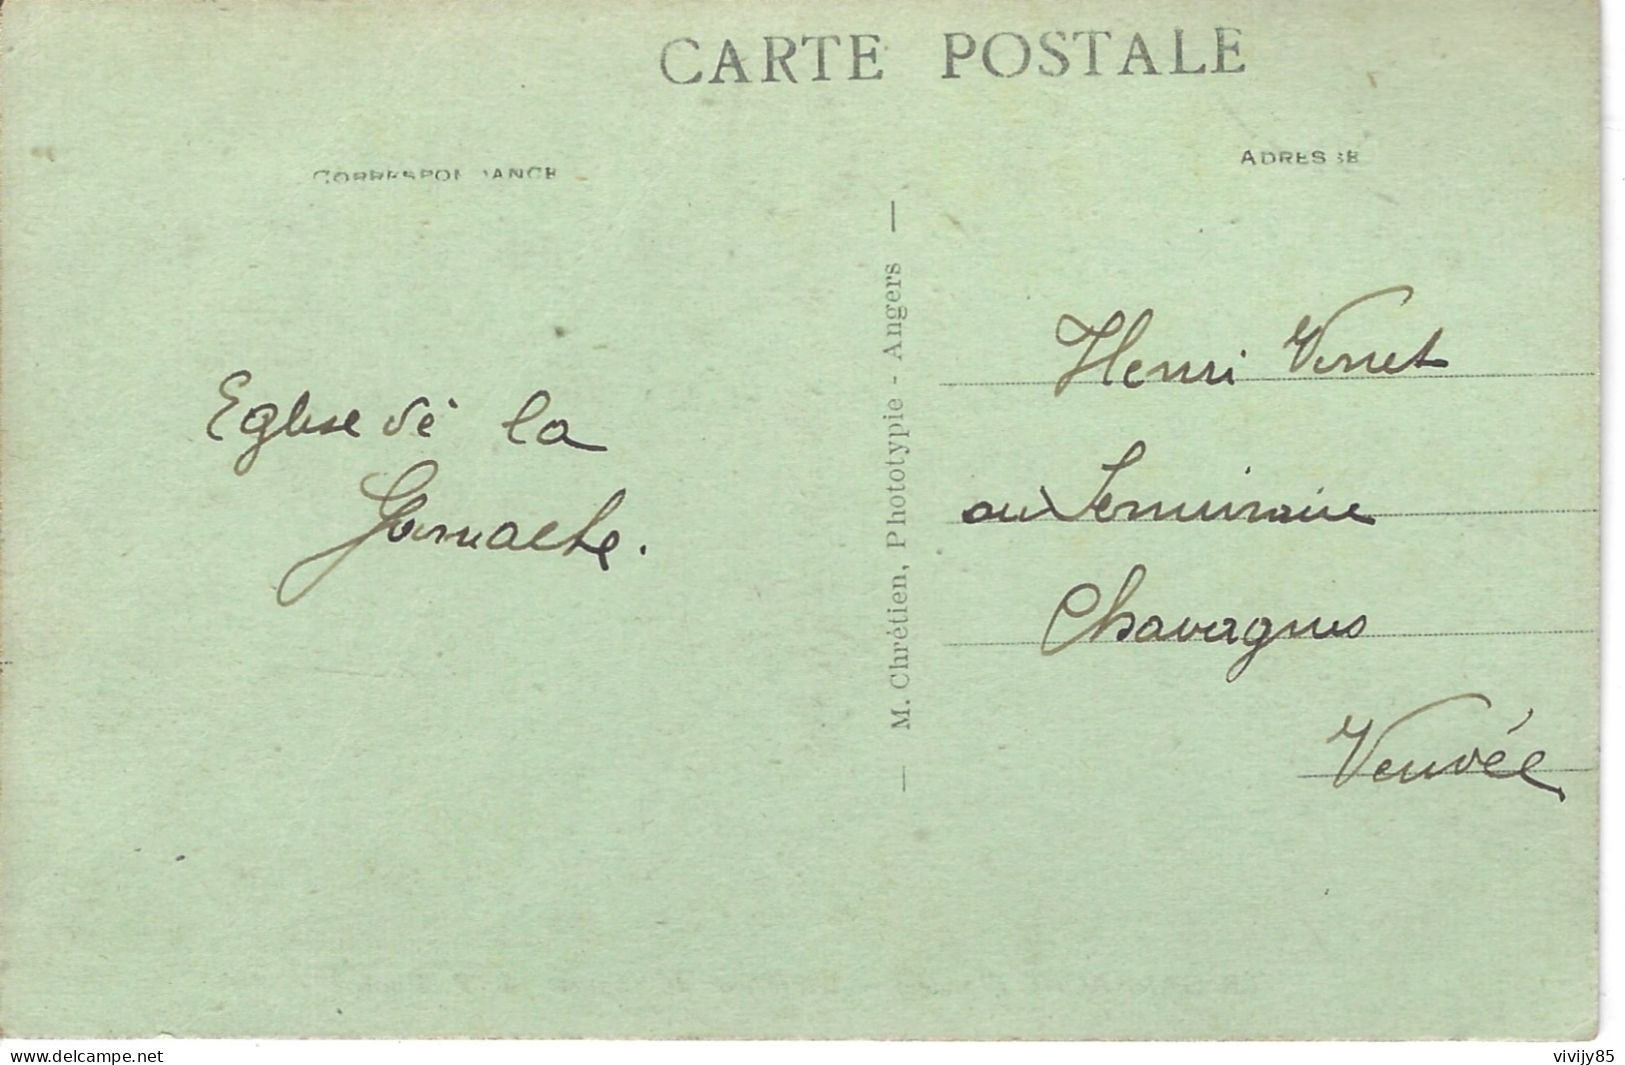 CARTE POSTALE
CORRESPONDANCE
ADRESSE
Eglise de la
Garnache.
M. Chrétien, Phototypie - Angers
Henri Vinet
au Seminaire
Chavagnes
Vendée
www.delcampe.net
vivijy85